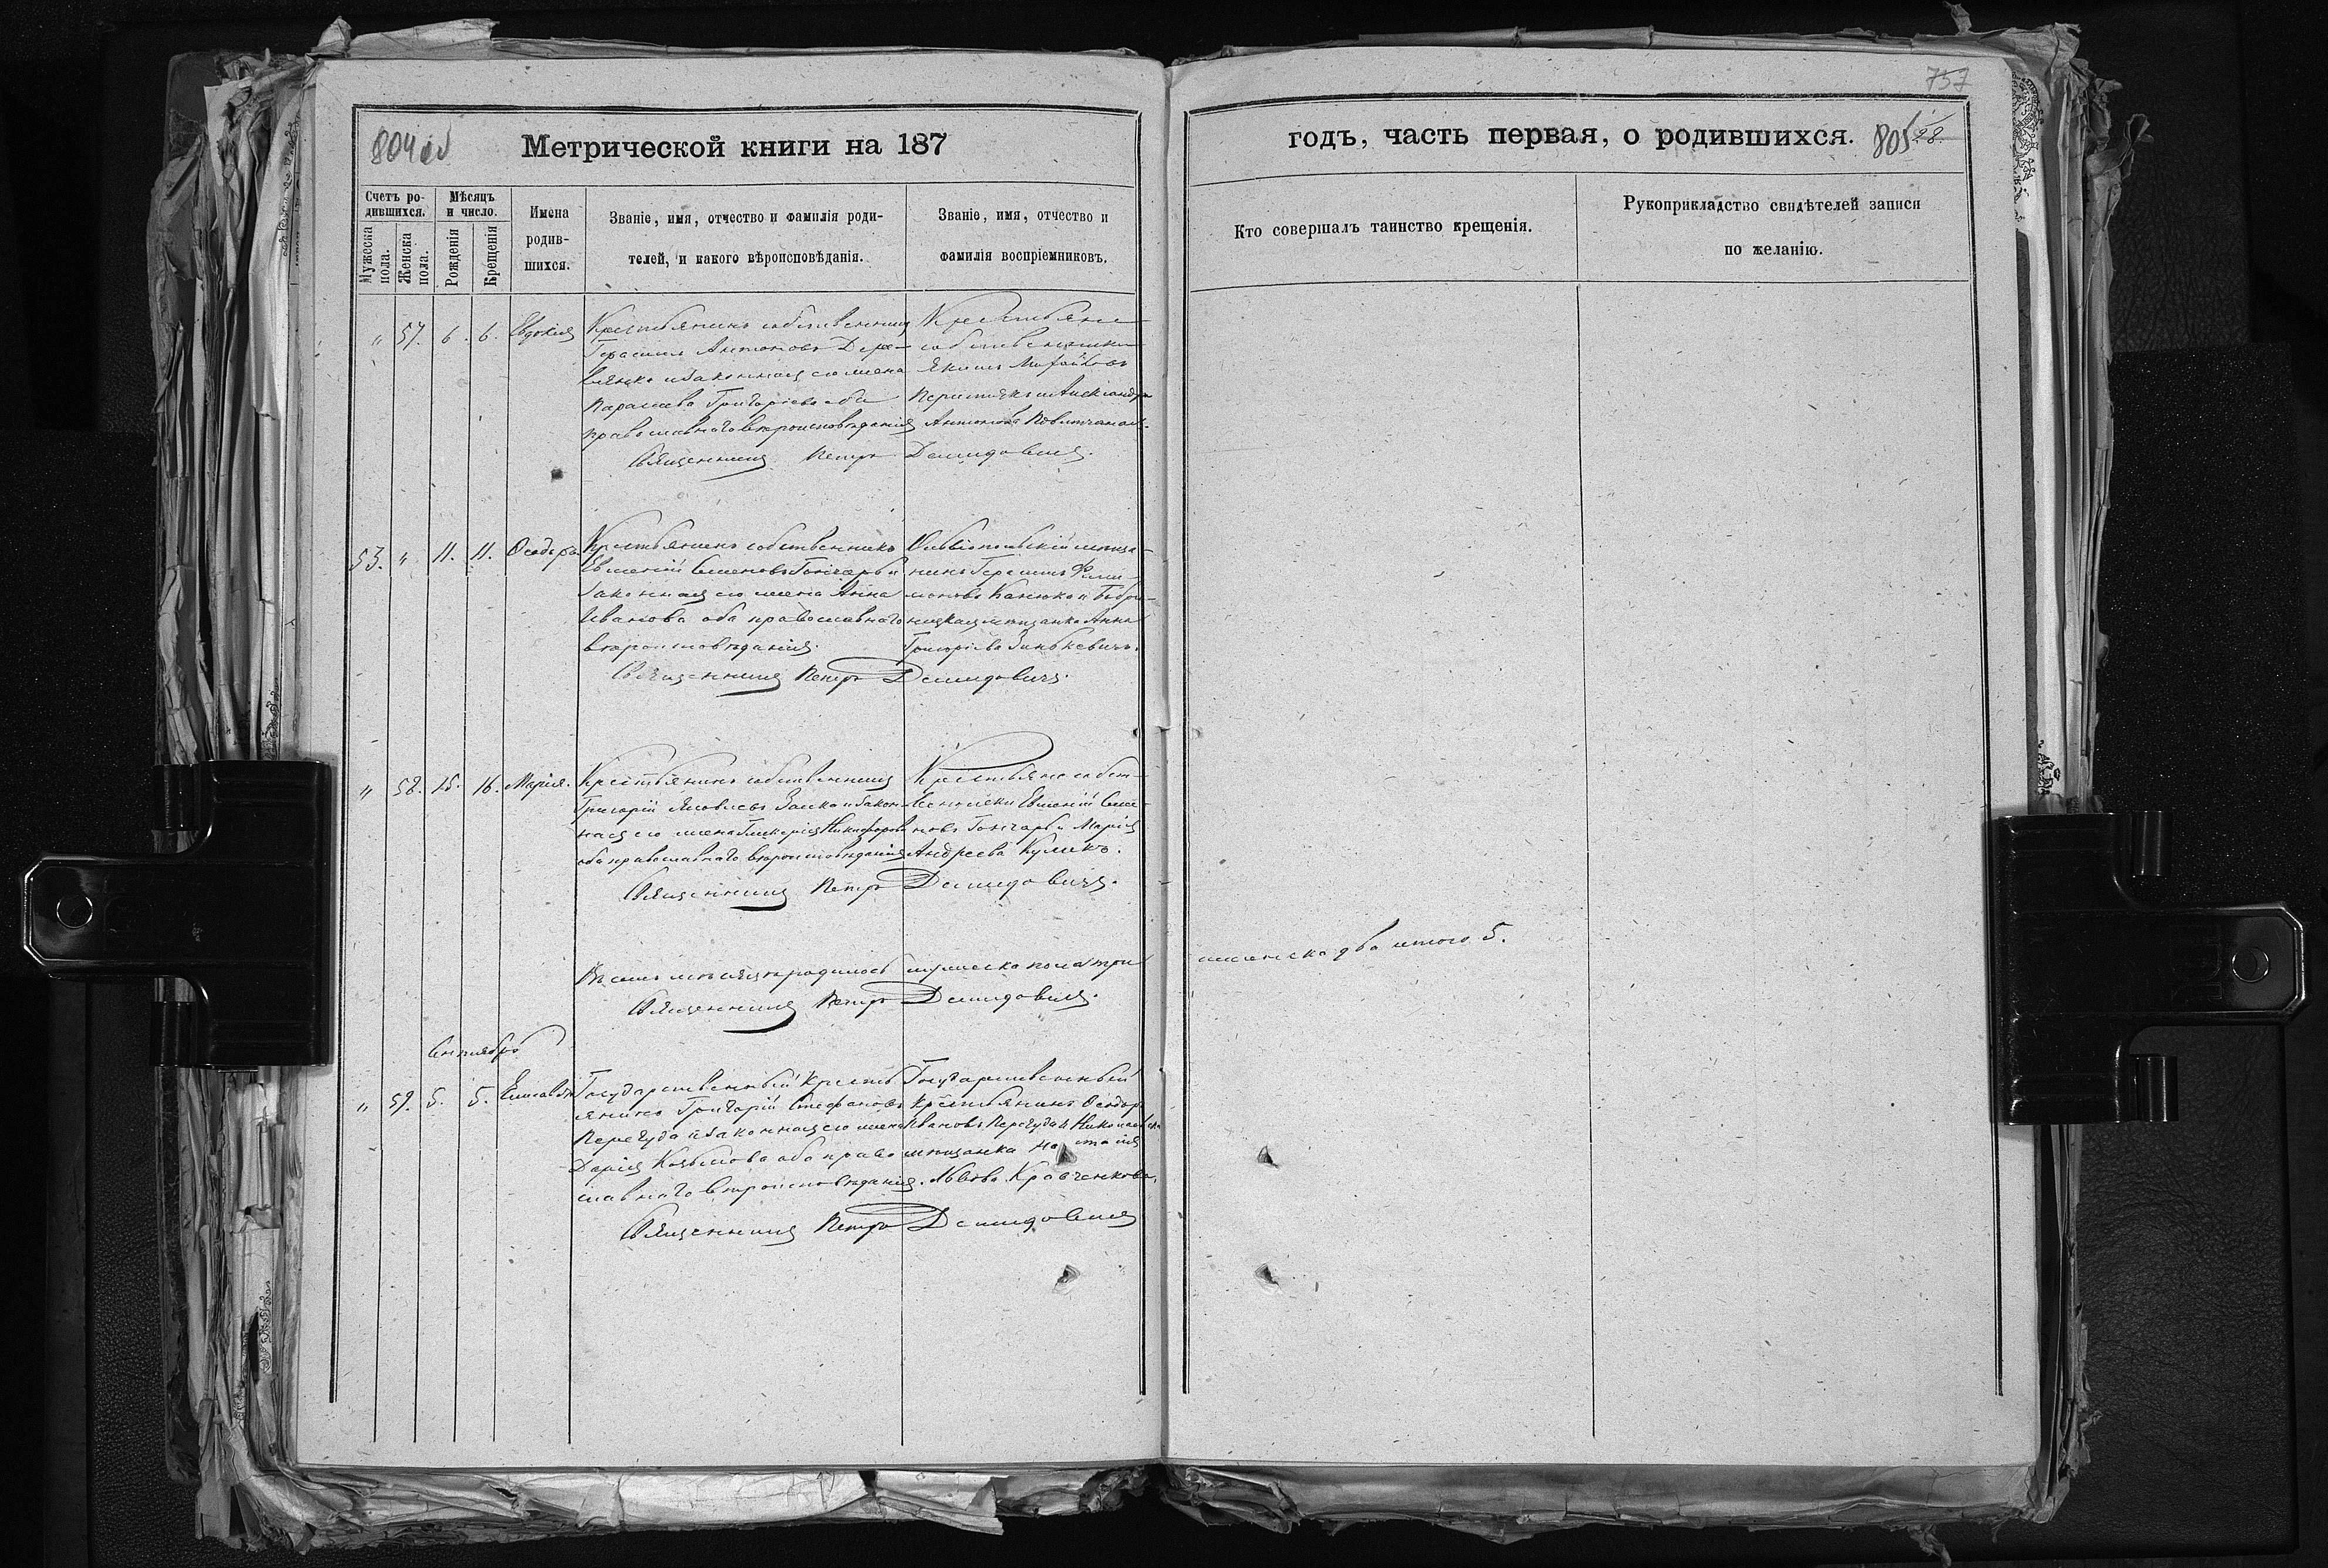 757
804 об
Метрической книги на 187
годъ, часть первая, о родившихся.
805
28.
Счетъ ро-
дившихся.
Мужеска
пола.
Женска
пола.
Мѣсяцъ
и число.
Рожденія
Крещенія
Имена
родив-
шихся.
Званіе, имя, отчество и фамилія роди-
телей, и какого вѣроисповѣданія.
Званіе, имя, отчество и
фамилія воспріемниковъ.
Кто совершалъ таинство крещенія.
Рукоприкладство свидѣтелей записи
по желанію.
„ 57. 6. 6. Евдокія
Крестьянинъ собственникъ
Герасимъ Антоновъ Дере-
вянко и законная его жена
Параскева Григорьева оба
православнаго вѣроисповѣданія
Крестьяне
собственники
Якимъ
и Александра
Антонова
Священникъ Петръ Демидовичъ.
53. „ 11. 11. Ѳеодоръ
Крестьянинъ собственникъ
Евменій Семеновъ Гончаръ и
законная его жена Анна
Иванова оба православнаго
вѣроисповѣданія.
Ольвіопольскій мѣща-
нинъ Герасимъ Фили-
моновъ Канюка и Бобри-
нецкая мѣщанка Анна
Григорьева Зинькевичъ.
Священникъ Петръ Демидовичъ.
„ 58. 15. 16. Марія.
Крестьянинъ собственникъ
Григорій Яковлевъ Заика и закон-
ная его жена Гликерія Никифорова
оба православнаго вѣроисповѣданія
Крестьяне собст-
венники Евменій Семе-
новъ Гончаръ и Марія
Андреева Куликъ.
Священникъ Петръ Демидовичъ.
Въ семъ мѣсяцѣ родилось мужеска пола три
женска два итого 5.
Священникъ Петръ Демидовичъ.
Сентябрь
„ 59. 5. 5. Елисавета
Государственный кресть-
янинъ Григорій Стефановъ
Перегуда и законная его жена
Дарія Козьмова оба право-
славнаго вѣроисповѣданія.
Государственный
крестьянинъ Ѳеодоръ
Ивановъ Перегуда и Николаевская
мѣщанка Наталія
Львова Кравченкова.
Священникъ Петръ Демидовичъ